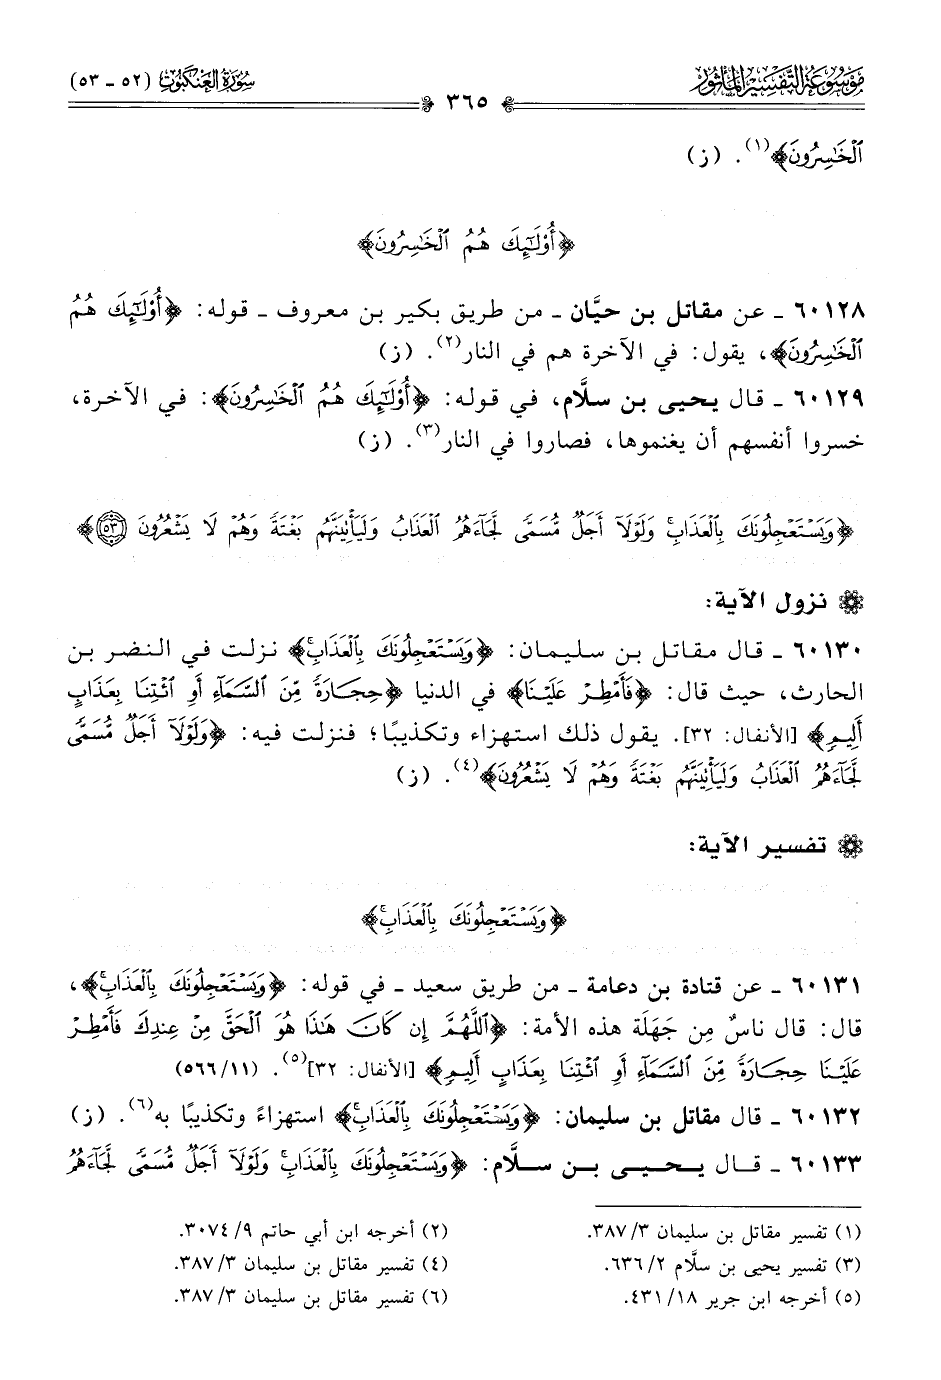 مَوْسُوعَة التَّفْسِير المَأْثُور
٣٦٥
سُورَةُ العَنْكَبُوتِ (٥٢ - ٥٣)
ٱلْخَٰسِرُونَ﴾(١). (ز)
﴿أُوْلَٰٓئِكَ هُمُ ٱلْخَٰسِرُونَ﴾
٦٠١٢٨ - عن مقاتل بن حيَّان - من طريق بكير بن معروف - قوله: ﴿أُوْلَٰٓئِكَ هُمُ
ٱلْخَٰسِرُونَ﴾، يقول: في الآخرة هم في النار(٢). (ز)
٦٠١٢٩ - قال يحيى بن سلَّام، في قوله: ﴿أُوْلَٰٓئِكَ هُمُ ٱلْخَٰسِرُونَ﴾: في الآخرة،
خسروا أنفسهم أن يغنموها، فصاروا في النار(٣). (ز)
﴿وَيَسْتَعْجِلُونَكَ بِٱلْعَذَابِۚ وَلَوْلَآ أَجَلٌ مُّسَمًّى لَّجَآءَهُمُ ٱلْعَذَابُ وَلَيَأْتِيَنَّهُم بَغْتَةً وَهُمْ لَا يَشْعُرُونَ ٥٣﴾
نزول الآية:
٦٠١٣٠ - قال مقاتل بن سليمان: ﴿وَيَسْتَعْجِلُونَكَ بِٱلْعَذَابِۚ﴾ نزلت في النضر بن
الحارث، حيث قال: ﴿فَأَمْطِرْ عَلَيْنَا﴾ في الدنيا ﴿حِجَارَةً مِّنَ ٱلسَّمَآءِ أَوِ ٱئْتِنَا بِعَذَابٍ
أَلِيمٍ﴾ [الأنفال: ٣٢]. يقول ذلك استهزاء وتكذيبًا؛ فنزلت فيه: ﴿وَلَوْلَآ أَجَلٌ مُّسَمًّى
لَّجَآءَهُمُ ٱلْعَذَابُ وَلَيَأْتِيَنَّهُم بَغْتَةً وَهُمْ لَا يَشْعُرُونَ﴾(٤). (ز)
تفسير الآية:
﴿وَيَسْتَعْجِلُونَكَ بِٱلْعَذَابِۚ﴾
٦٠١٣١ - عن قتادة بن دعامة - من طريق سعيد - في قوله: ﴿وَيَسْتَعْجِلُونَكَ بِٱلْعَذَابِۚ﴾،
قال: قال ناسٌ مِن جَهَلَة هذه الأمة: ﴿ٱللَّهُمَّ إِن كَانَ هَٰذَا هُوَ ٱلْحَقَّ مِنْ عِندِكَ فَأَمْطِرْ
عَلَيْنَا حِجَارَةً مِّنَ ٱلسَّمَآءِ أَوِ ٱئْتِنَا بِعَذَابٍ أَلِيمٍ﴾ [الأنفال: ٣٢](٥). (١١/ ٥٦٦)
٦٠١٣٢ - قال مقاتل بن سليمان: ﴿وَيَسْتَعْجِلُونَكَ بِٱلْعَذَابِۚ﴾ استهزاءً وتكذيبًا به(٦). (ز)
٦٠١٣٣ - قال يحيى بن سلَّام: ﴿وَيَسْتَعْجِلُونَكَ بِٱلْعَذَابِۚ وَلَوْلَآ أَجَلٌ مُّسَمًّى لَّجَآءَهُمُ
(١) تفسير مقاتل بن سليمان ٣/ ٣٨٧.
(٢) أخرجه ابن أبي حاتم ٩/ ٣٠٧٤.
(٣) تفسير يحيى بن سلَّام ٢/ ٦٣٦.
(٤) تفسير مقاتل بن سليمان ٣/ ٣٨٧.
(٥) أخرجه ابن جرير ١٨/ ٤٣١.
(٦) تفسير مقاتل بن سليمان ٣/ ٣٨٧.